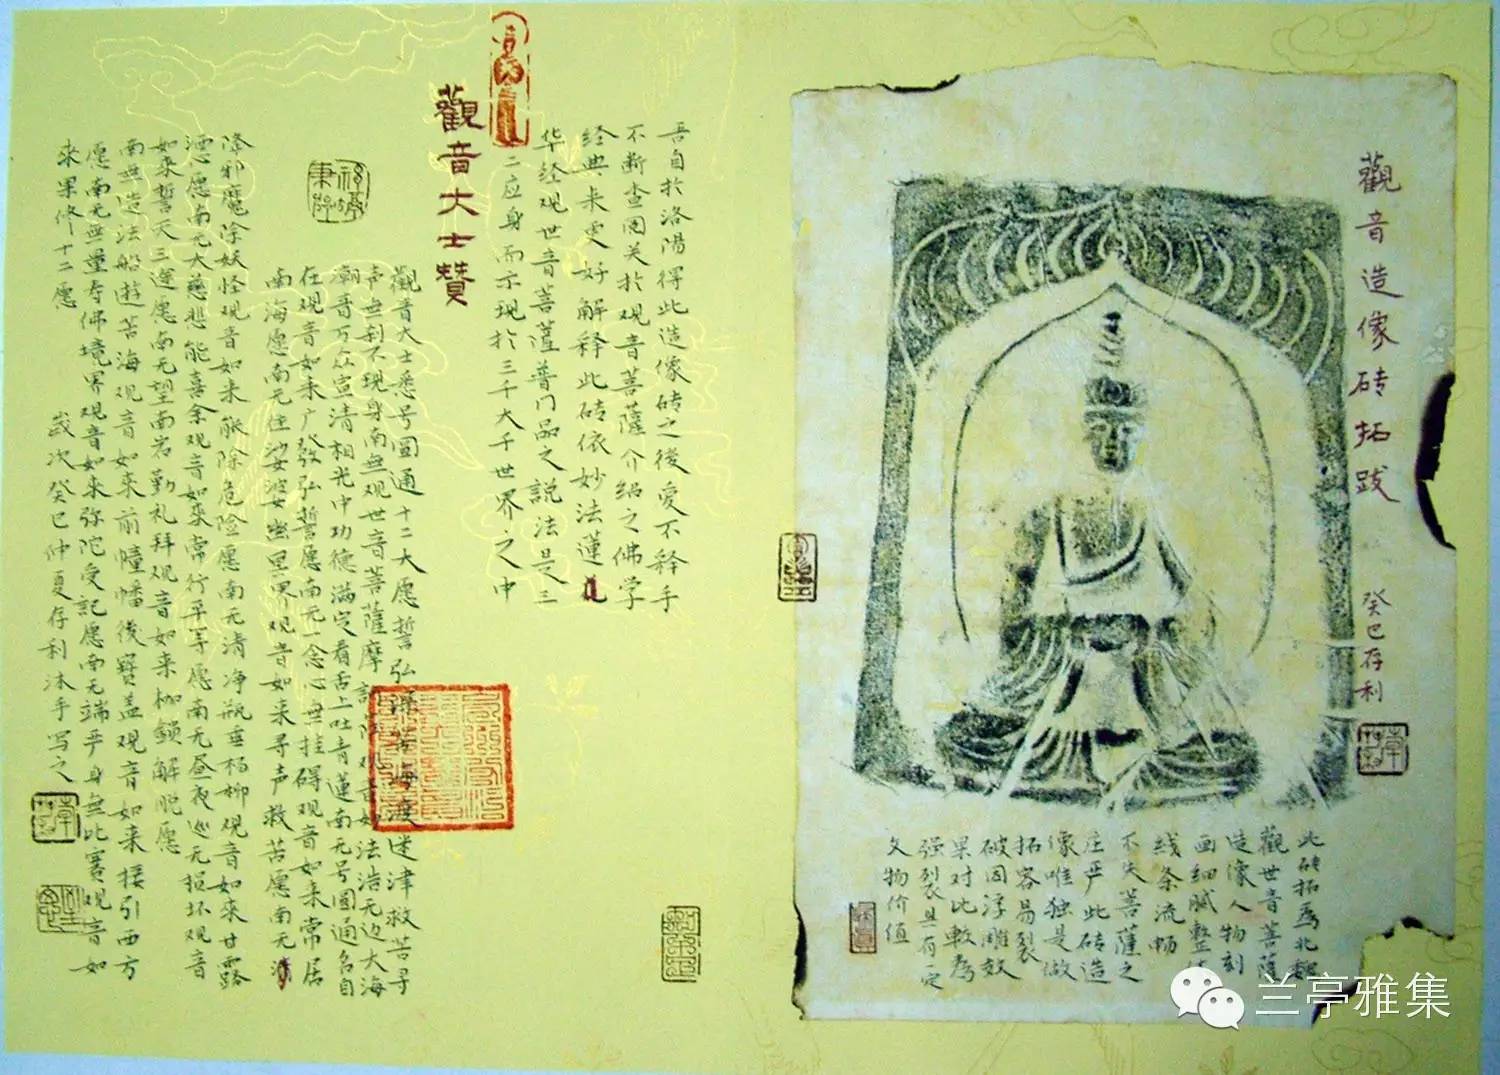 觀音造像砖拓跋
癸巳存利
此砖拓為北魏
觀世音菩薩
造像人物刻
画细腻整体
线条流畅
不失菩薩之
庄严此砖造
像唯独是做
拓容易裂
破因浮雕效
果对比較為
强裂且有一定
文物价值
吾自於洛陽得此造像砖之後爱不释手
不断查阅关於观音菩薩介绍之佛学
经典来更好解释此砖依妙法蓮
华经观世音菩薩普门品之説法是三
十二应身而示现於三千大千世界之中
觀音大士赞
觀音大士悉号圆通十二大愿誓弘深苦海渡迷津救苦寻
声無刹不现身南無观世音菩薩摩訶薩
观音如法浩无边大海
潮音万众宣清相光中功德满定看舌上吐青蓮南无号圆通名自
在观音如来广发弘誓愿南无一念心無挂碍观音如来常居
南海愿南无住娑婆幽冥界观音如来寻声救苦愿南无
降邪魔除妖怪观音如来能除危险愿南无清净瓶垂杨柳观音如来甘露
洒心愿南无大慈悲能喜舍观音如来常行平等愿南无昼夜巡无损坏观音
如来誓灭三途愿南无望南岩勤礼拜观音如来枷鎖解脱愿
南無造法船遊苦海观音如来前幢幡後寳盖观音如来接引西方
愿南无無量寿佛境界观音如来弥陀受記愿南无端严身無比赛观音如
来果修十二愿
岁次癸巳仲夏存利沐手写之
兰亭雅集